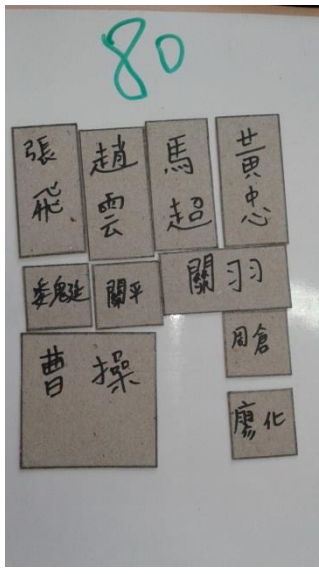 80
張飛
趙雲
馬超
黃忠
魏延
關平
關羽
周倉
曹操
廖化